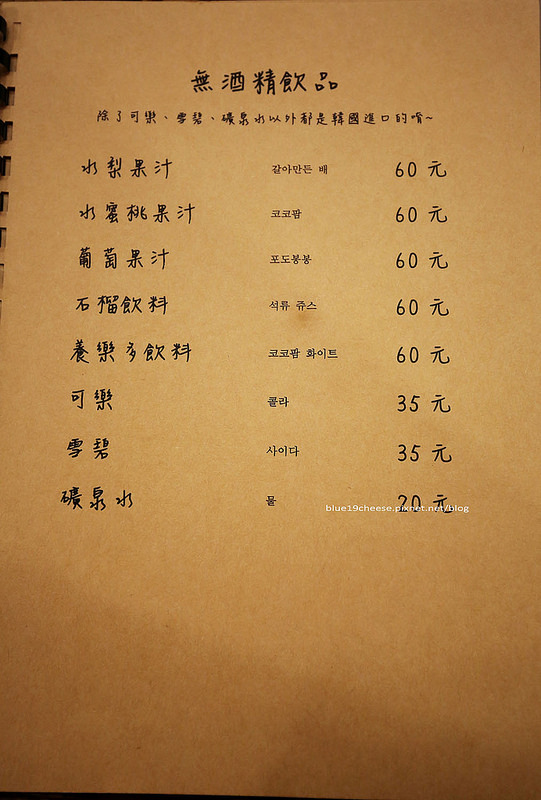 無酒精飲品
除了可樂、雪碧、礦泉水以外都是韓國進口的唷~
水梨果汁 갈아만든 배 60 元
水蜜桃果汁 코코팜 60 元
葡萄果汁 포도봉봉 60 元
石榴飲料 석류 쥬스 60 元
養樂多飲料 코코팜 화이트 60 元
可樂 콜라 35 元
雪碧 사이다 35 元
礦泉水 물 20 元
blue19cheese.pixnet.net/blog